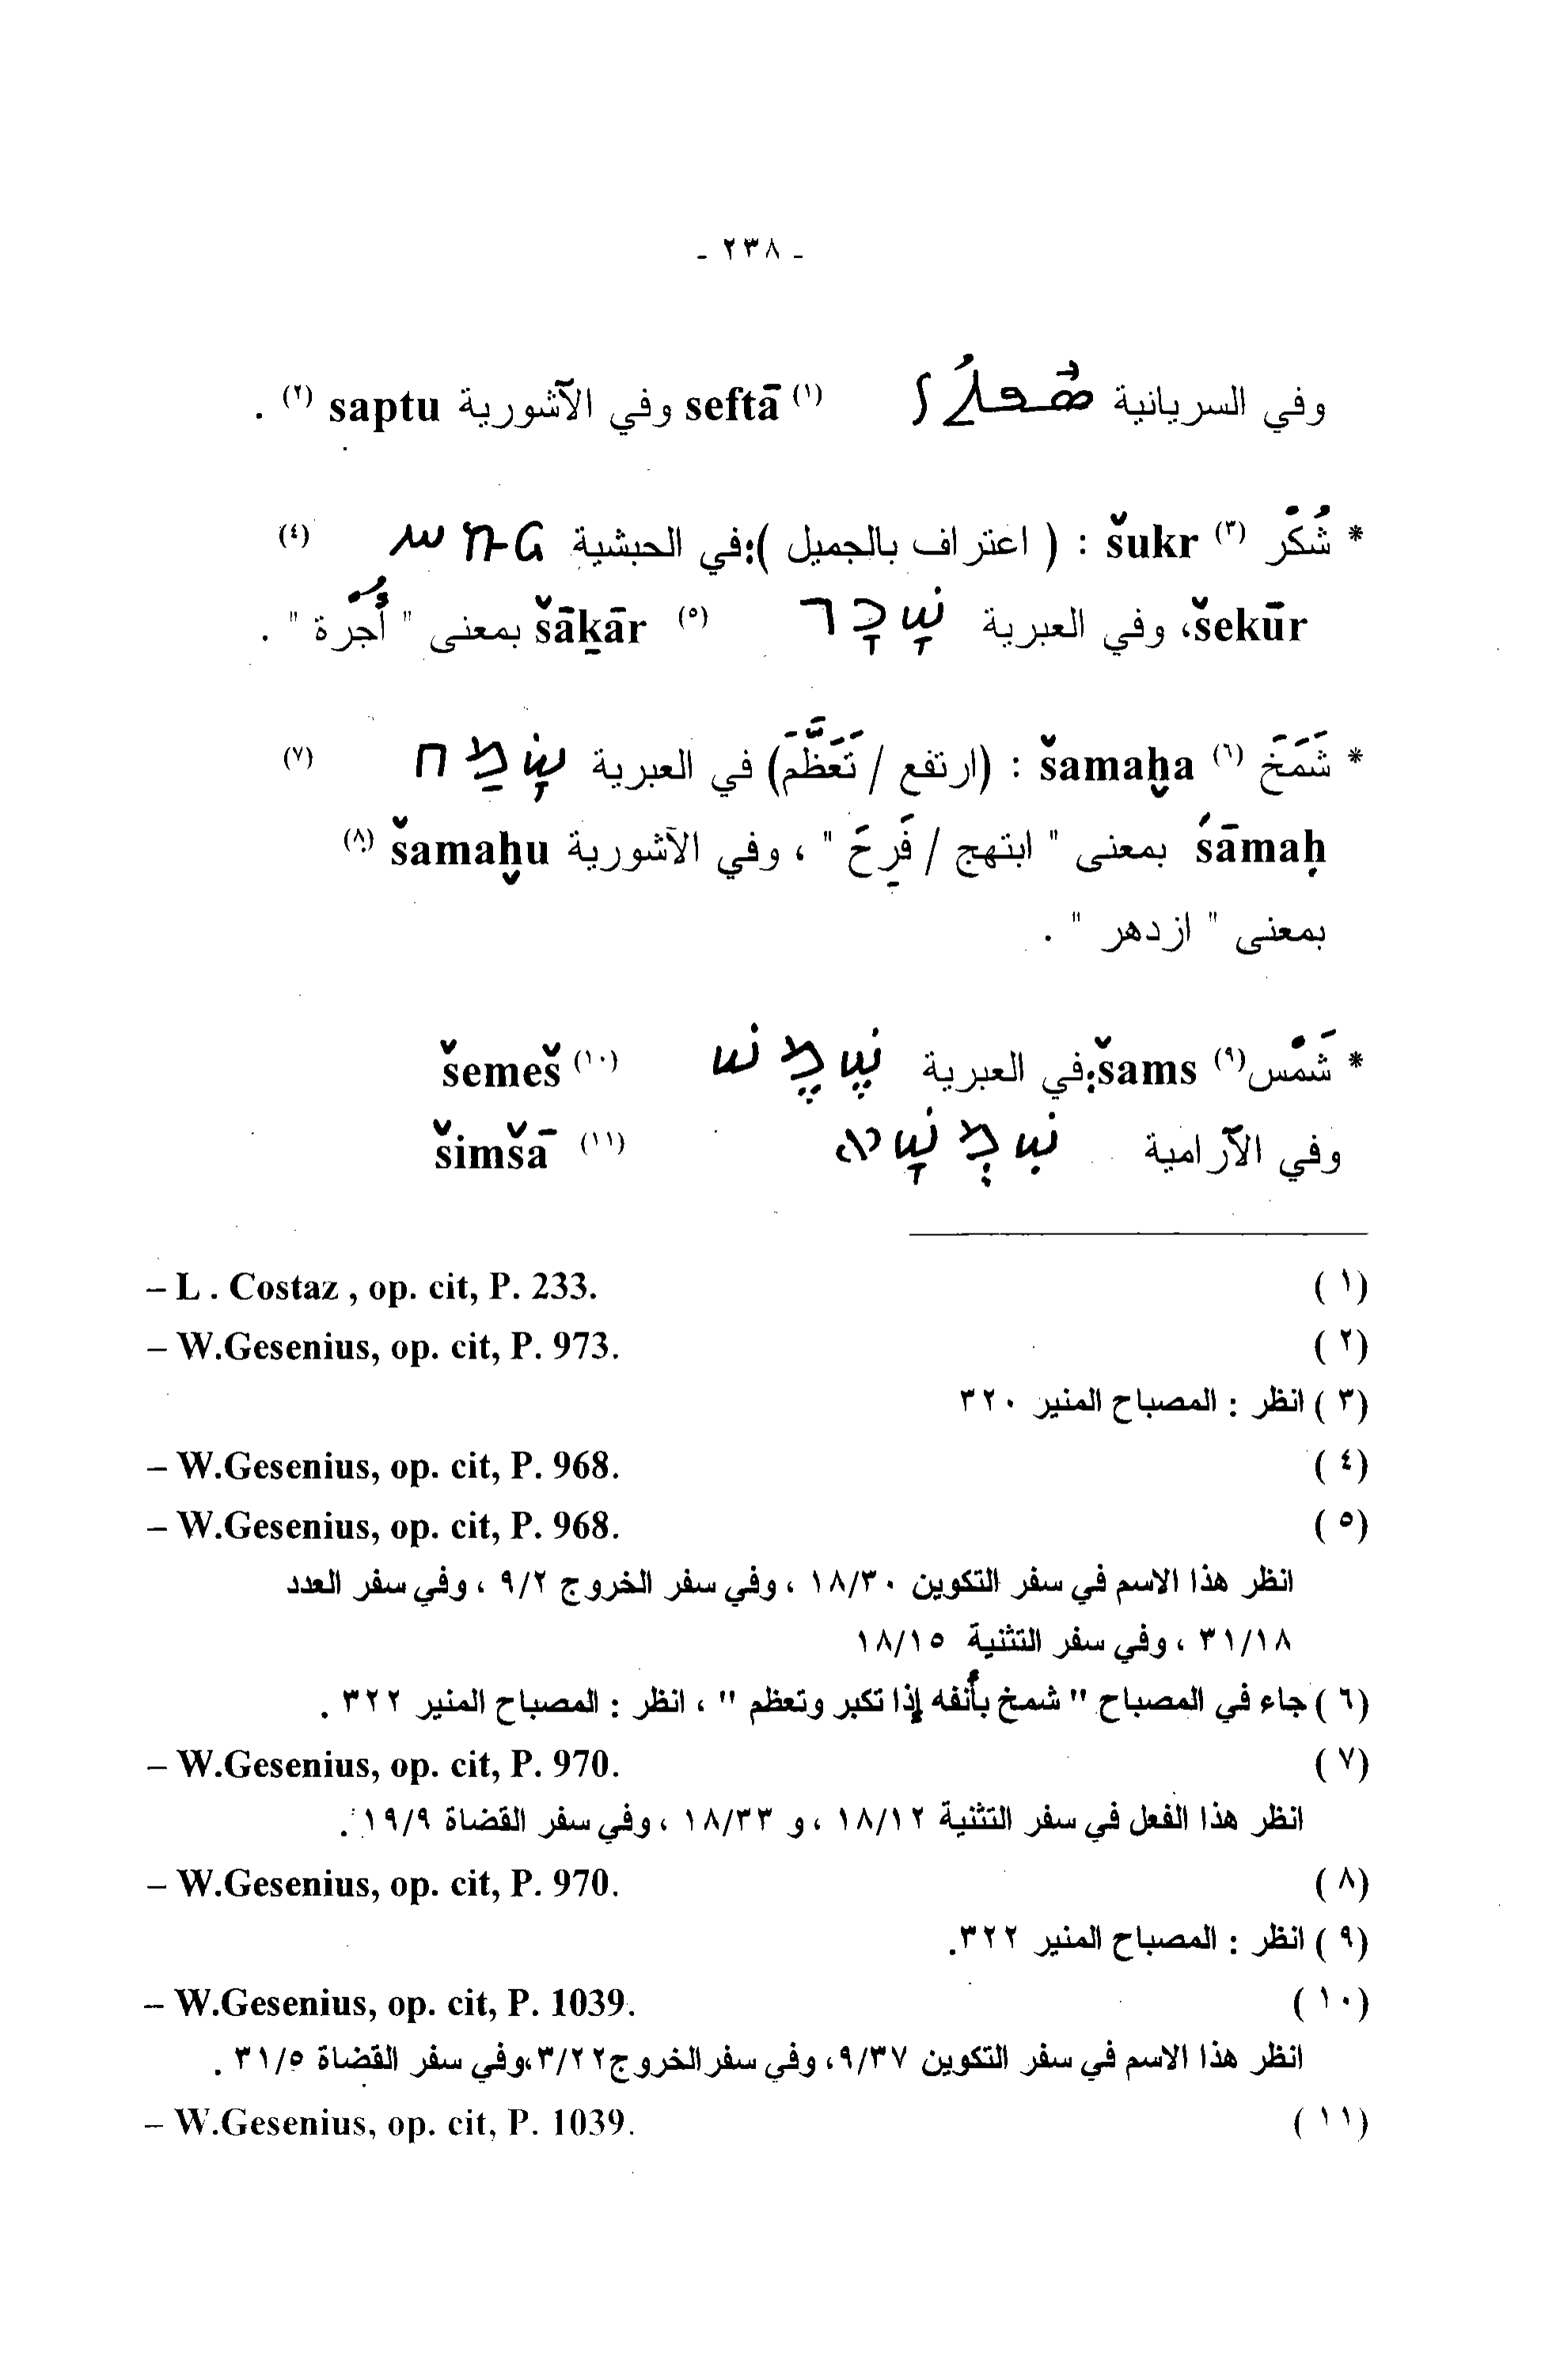 - ٢٣٨ -
وفي السريانية (١) seftā وفي الآشورية saptu (٢) .
* شُكْر (٣) šukr : ( اعتراف بالجميل ):في الحبشية (٤)
šekūr، وفي العبرية שָׁכָר (٥) šāḵār بمعنى " أُجرة " .
* شَمَخَ (٦) šamaḫa : (ارتفع / تَعَظَّمَ) في العبرية שָׂמַח (٧)
śāmaḥ بمعنى " ابتهج / فَرِحَ " ، وفي الآشورية šamaḫu (٨)
بمعنى " ازدهر " .
* شَمْس (٩) šams:في العبرية שֶׁמֶשׁ (١٠) šemeš
وفي الآرامية שִׁמְשָׁא (١١) šimšā
(١) – L . Costaz , op. cit, P. 233.
(٢) – W.Gesenius, op. cit, P. 973.
(٣) انظر : المصباح المنير ٣٢٠
(٤) – W.Gesenius, op. cit, P. 968.
(٥) – W.Gesenius, op. cit, P. 968.
انظر هذا الاسم في سفر التكوين ١٨/٣٠ ، وفي سفر الخروج ٩/٢ ، وفي سفر العدد
٣١/١٨ ، وفي سفر التثنية ١٨/١٥
(٦) جاء في المصباح " شمخ بأنفه إذا تكبر وتعظم " ، انظر : المصباح المنير ٣٢٢ .
(٧) – W.Gesenius, op. cit, P. 970.
انظر هذا الفعل في سفر التثنية ١٨/١٢ ، و ١٨/٣٣ ، وفي سفر القضاة ١٩/٩ .
(٨) – W.Gesenius, op. cit, P. 970.
(٩) انظر : المصباح المنير ٣٢٢.
(١٠) – W.Gesenius, op. cit, P. 1039.
انظر هذا الاسم في سفر التكوين ٩/٣٧، وفي سفر الخروج ٣/٢٢،وفي سفر القضاة ٣١/٥ .
(١١) – W.Gesenius, op. cit, P. 1039.